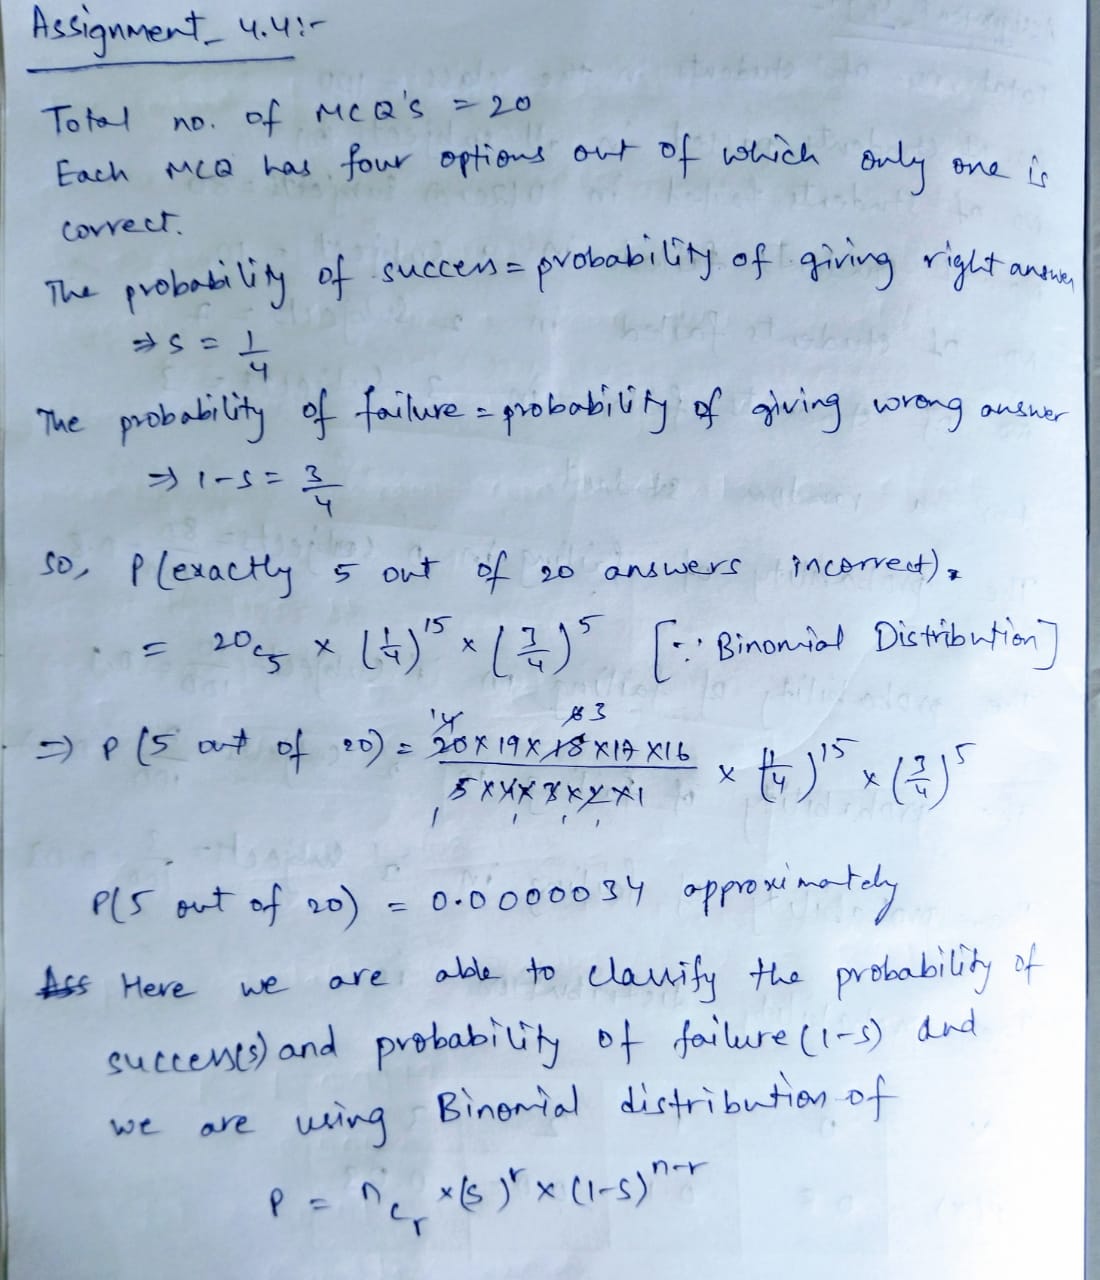 Assignment_4.4:-
Total no. of MCQ's = 20
Each MCQ has four options out of which only one is
correct.
The probability of success = probability of giving right answer
⇒ s = 1/4
The probability of failure = probability of giving wrong answer
⇒ 1-s = 3/4
So, P(exactly 5 out of 20 answers incorrect),
= 20c5 × (1/4)^15 × (3/4)^5 [∵ Binomial Distribution]
⇒ P (5 out of 20) = 20×19×18×17×16 / 5×4×3×2×1 × (1/4)^15 × (3/4)^5
P(5 out of 20) = 0.0000034 approximately
Ass Here we are able to classify the probability of
success(s) and probability of failure (1-s) and
we are using Binomial distribution of
P = ncr ×(s)^r × (1-s)^n-r